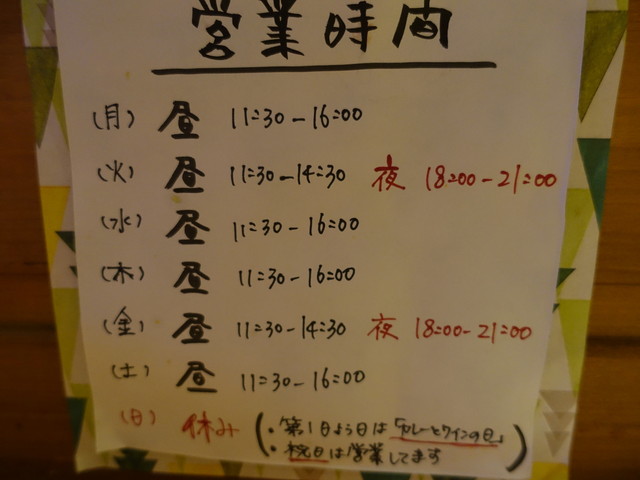 営業時間
(月) 昼 11:30-16:00
(火) 昼 11:30-14:30 夜 18:00-21:00
(水) 昼 11:30-16:00
(木) 昼 11:30-16:00
(金) 昼 11:30-14:30 夜 18:00-21:00
(土) 昼 11:30-16:00
(日) 休み (・第1日よう日は「カレーとワインの日」
・祝日は営業してます)